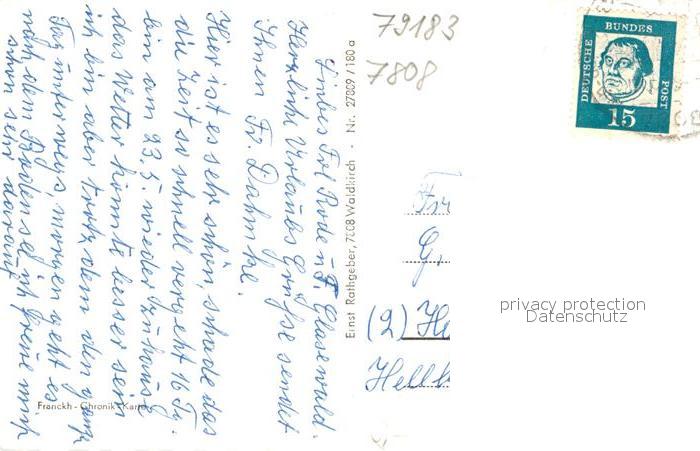 Liebes Frl Rode u. F. Glasewald.
Herzliche Urlaubs Grüße sendet
Ihnen Fr. Dahmke.
Hier ist es sehr schön, schade das
die Zeit so schnell vergeht 16 T.
bin am 23.5. wieder zuhause
das Wetter könnte besser sein
ich bin aber trotz dem den ganz
Tag unterwegs, morgen geht es
nach dem Bodensee, ich freue mich
schon sehr darauf
Franckh-Chronik-Karte
Ernst Rathgeber, 7808 Waldkirch - Nr. 27809/180 a
79183
7808
DEUTSCHE
BUNDES
POST
15
Fr
G.
(2) He
Hellb
privacy protection
Datenschutz